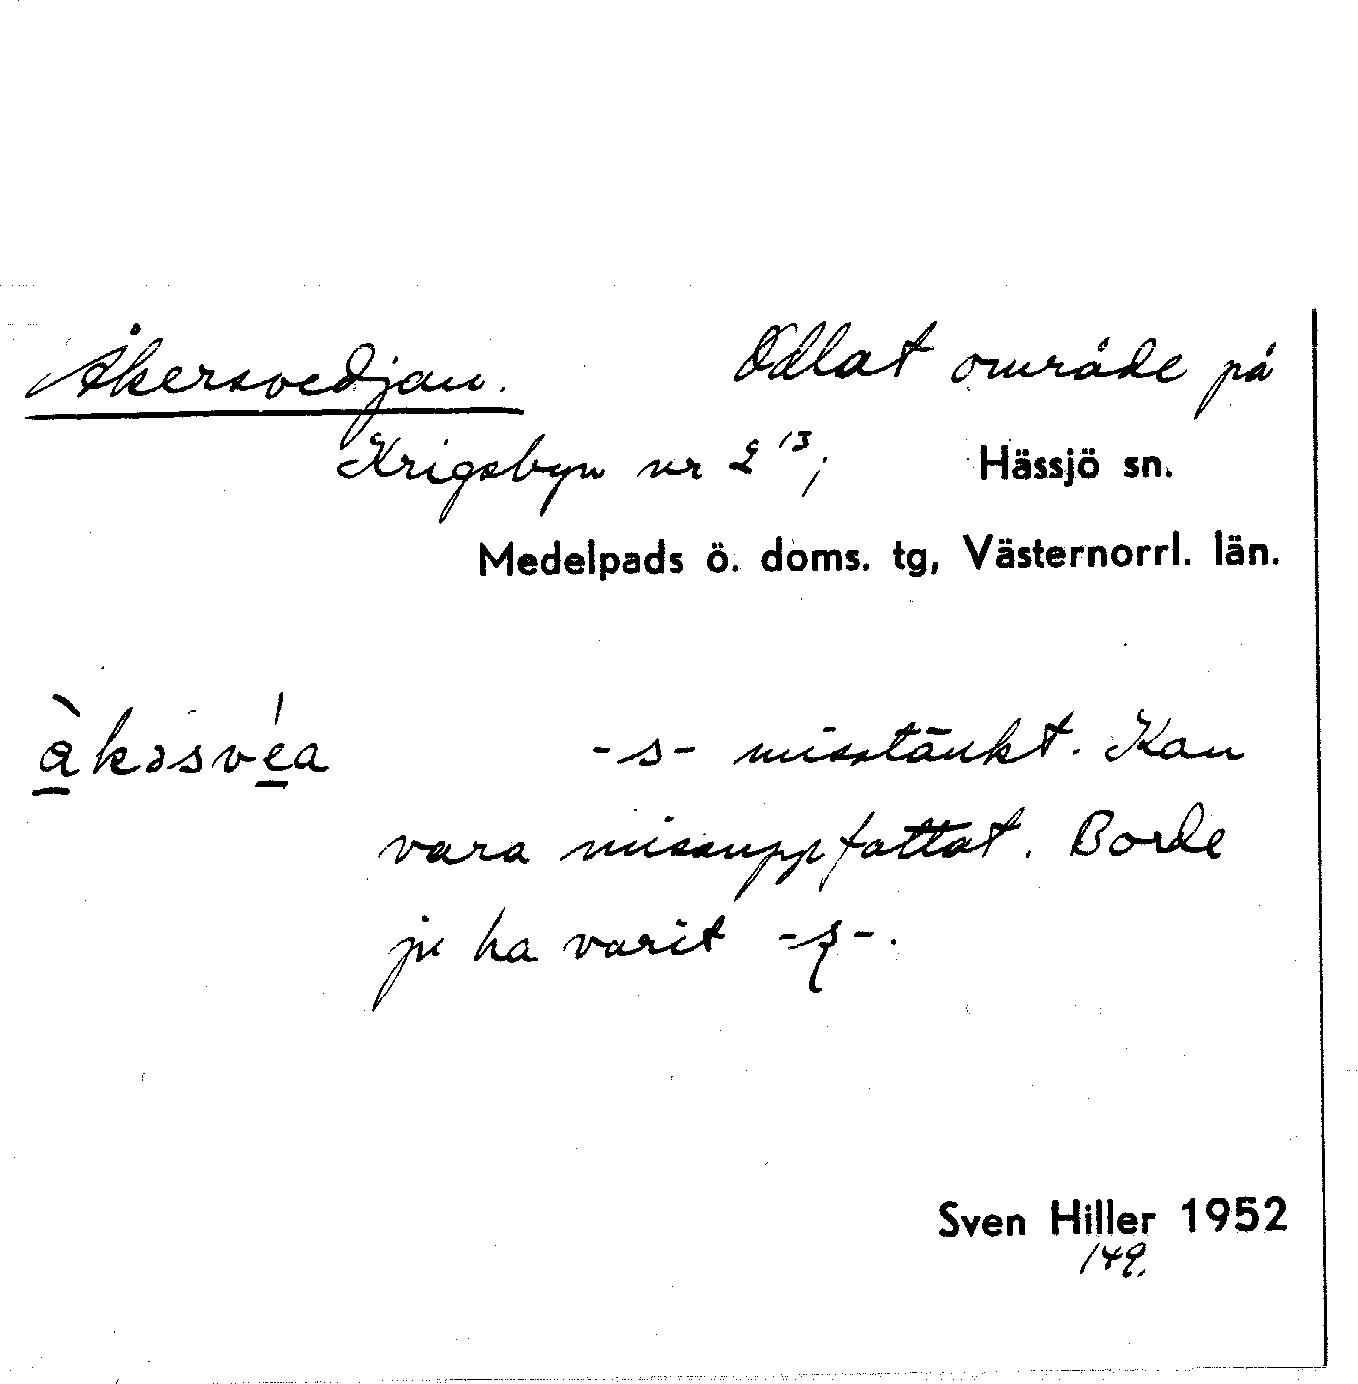 Åkersvedjan. Odlat område på
Krigsbyn nr 2¹³; Hässjö sn.
Medelpads ö. doms. tg, Västernorrl. län.
àkəsvéa -s- misstänkt. Kan
vara missuppfattat. Borde
ju ha varit -ş-.
Sven Hiller 1952
149.